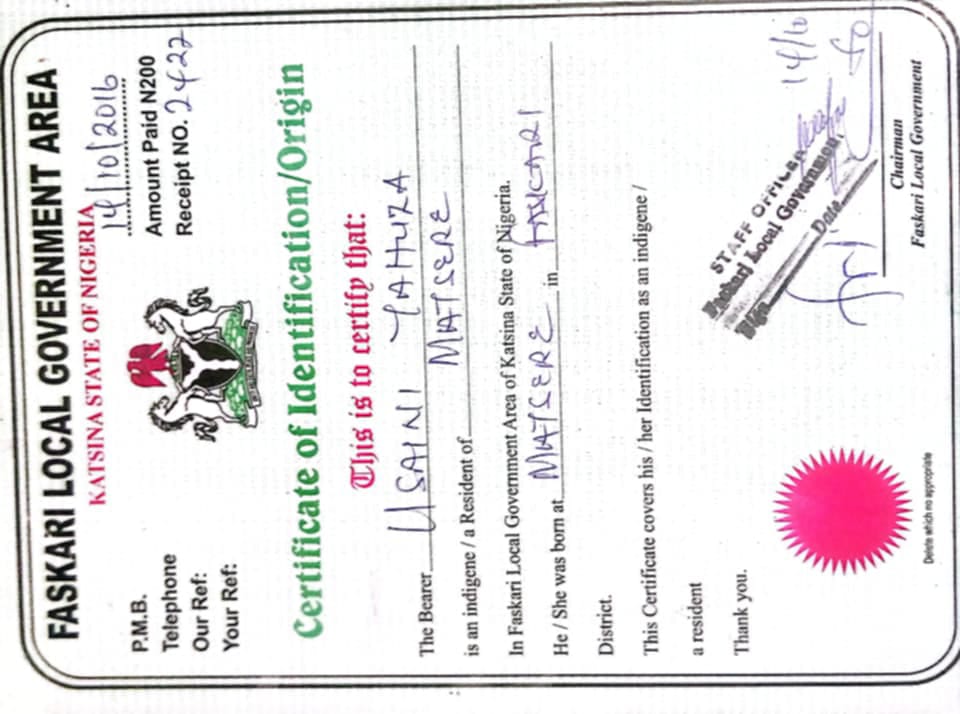 FASKARI LOCAL GOVERNMENT AREA
KATSINA STATE OF NIGERIA
14/10/2016
P.M.B.
Telephone
Our Ref:
Your Ref:
Amount Paid N200
Receipt NO. 2422
Certificate of Identification/Origin
This is to certify that:
The Bearer USAINI YAHUZA
is an indigene / a Resident of MATSERE
In Faskari Local Government Area of Katsina State of Nigeria.
He / She was born at MATSERE in FASKARI
District.
This Certificate covers his / her Identification as an indigene /
a resident
Thank you.
STAFF OFFICER
Faskari Local Government
Sign Date
14/10
Chairman
Faskari Local Government
Delete which no appropriate